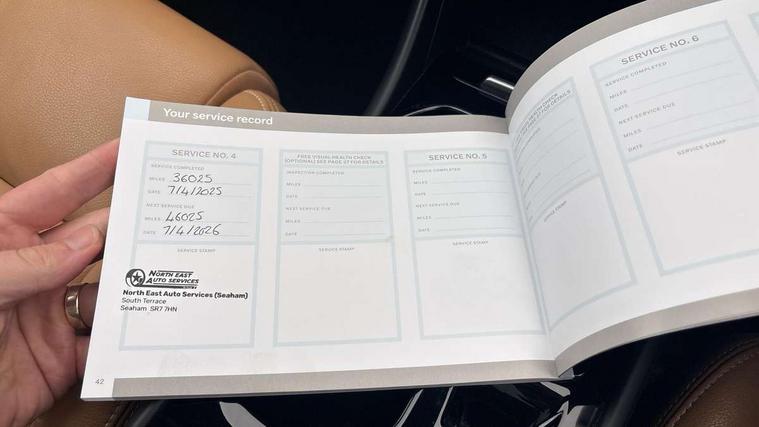 Your service record
SERVICE NO. 4
SERVICE COMPLETED
MILES 36025
DATE 7/4/2025
NEXT SERVICE DUE
MILES 46025
DATE 7/4/2026
SERVICE STAMP
NORTH EAST
AUTO SERVICES
North East Auto Services (Seaham)
South Terrace
Seaham SR7 7HN
42
FREE VISUAL HEALTH CHECK
(OPTIONAL) SEE PAGE 27 FOR DETAILS
INSPECTION COMPLETED
MILES
DATE
NEXT SERVICE DUE
MILES
DATE
SERVICE STAMP
SERVICE NO. 5
SERVICE COMPLETED
MILES
DATE
NEXT SERVICE DUE
MILES
DATE
SERVICE STAMP
HEALTH CHECK
SEE PAGE 27 FOR DETAILS
OFFICE STAMP
SERVICE NO. 6
SERVICE COMPLETED
MILES
DATE
NEXT SERVICE DUE
MILES
DATE
SERVICE STAMP